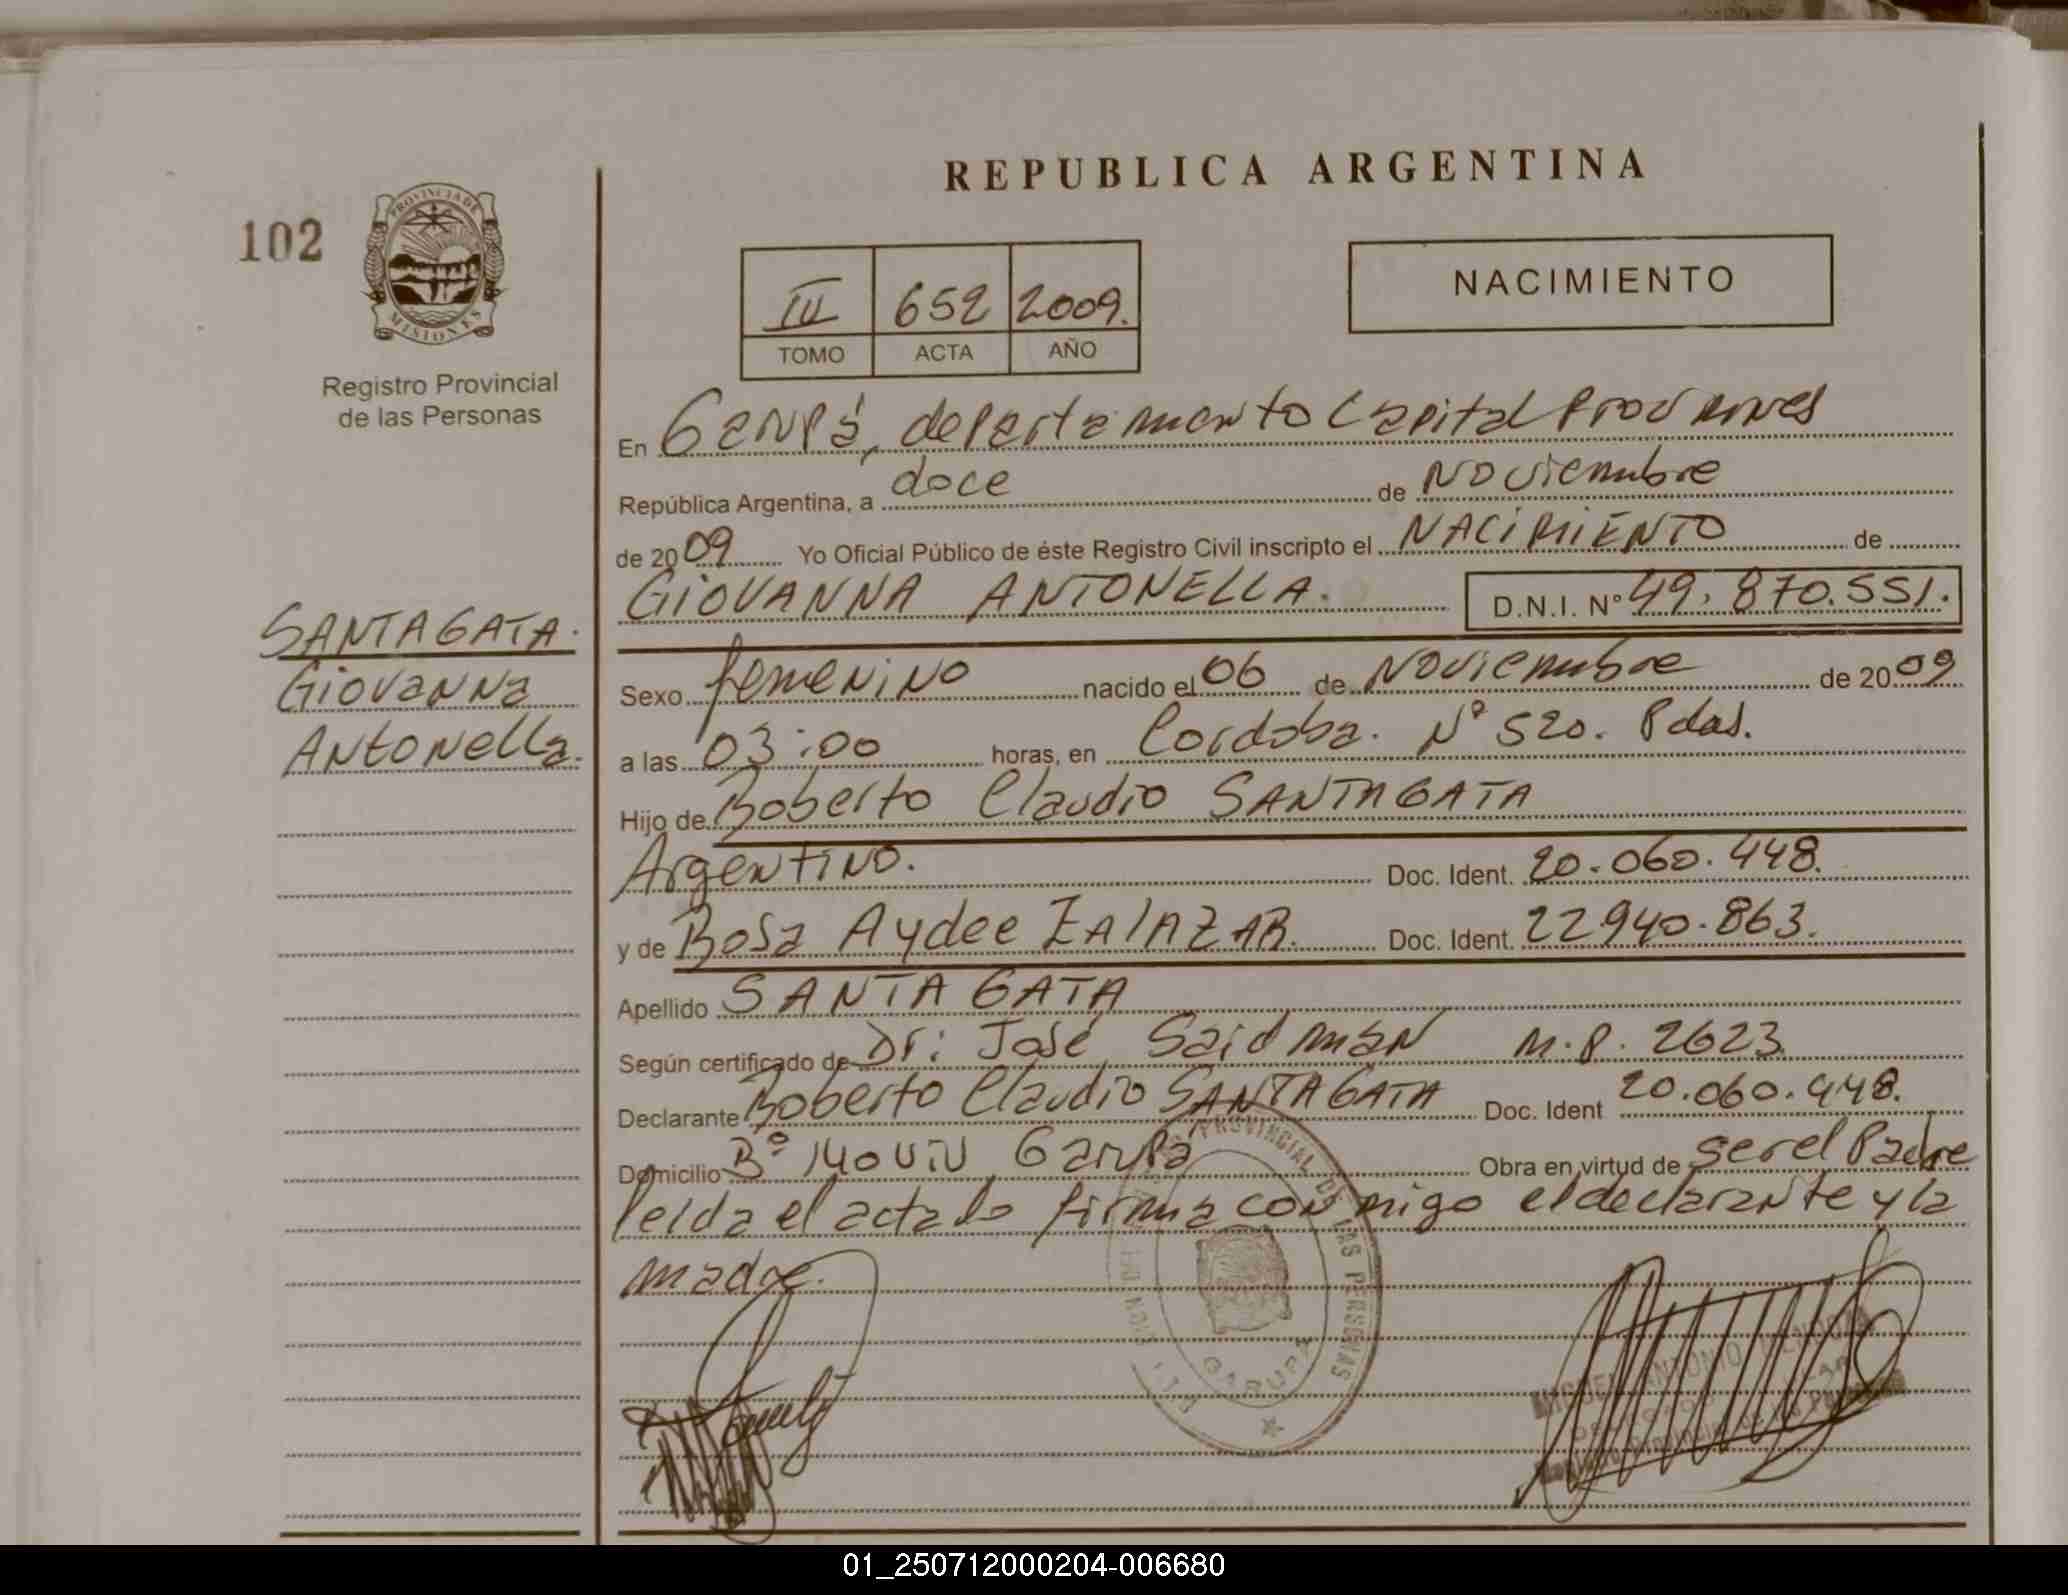 REPUBLICA ARGENTINA
102
PROVINCIA DE
MISIONES
Registro Provincial
de las Personas
III 652 2009.
TOMO ACTA AÑO
NACIMIENTO
En Garupá, departamento Capital Prov
República Argentina, a doce de Noviembre
de 2009 Yo Oficial Público de éste Registro Civil inscripto el NACIMIENTO de
GIOVANNA ANTONELLA. D.N.I. Nº 49.870.551.
SANTAGATA.
Giovanna
Antonella.
Sexo femenino nacido el 06 de Noviembre de 2009
a las 03:00 horas, en Cordoba. Nº 520. Pdas.
Hijo de Roberto Claudio SANTAGATA
Argentino. Doc. Ident. 20.060.448.
y de Rosa Aydee ZALAZAR. Doc. Ident. 22940.863.
Apellido SANTAGATA
Según certificado de Dr: José Saidman M.P. 2623
Declarante Roberto Claudio SANTAGATA Doc. Ident 20.060.448.
Domicilio Bº Garupá Obra en virtud de ser el Padre
leida el acta la firma conmigo el declarante y la
madre.
PROVINCIAL DE LAS PERSONAS
GARUPA
MIGUEL ANTONIO
01_250712000204-006680